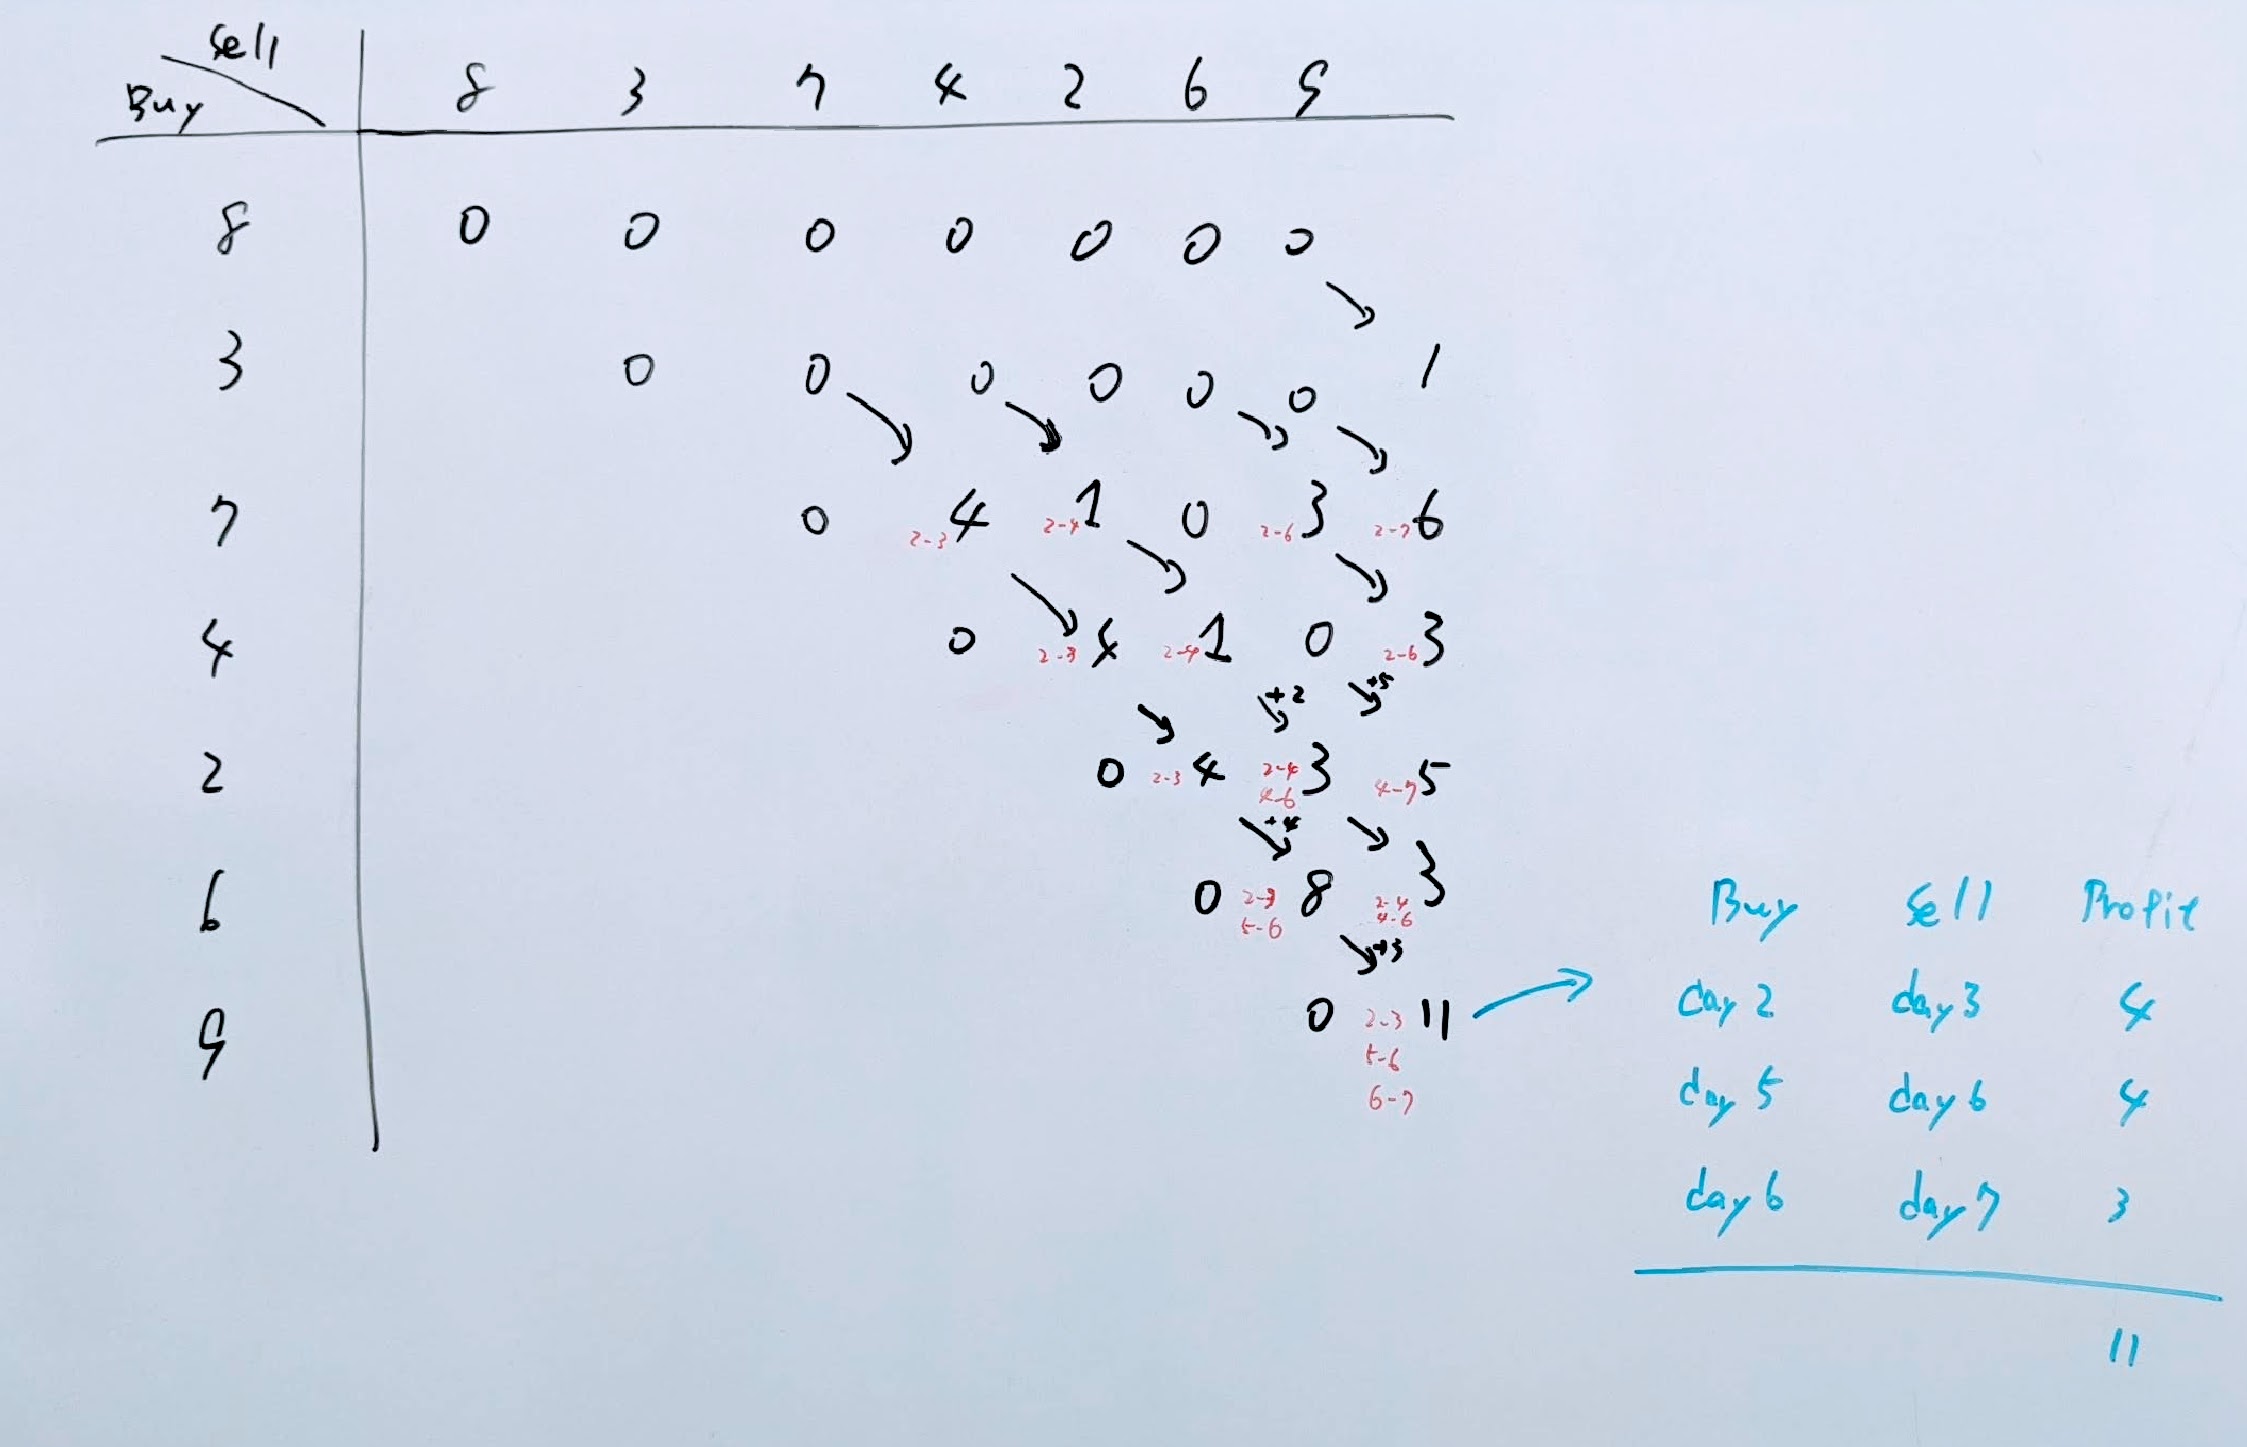 Sell
Buy
8 3 7 4 2 6 9
8 0 0 0 0 0 0 0
3 0 0 0 0 0 0 1
7 0 2-3 4 2-4 1 0 2-6 3 2-7 6
4 0 2-3 4 2-4 1 0 2-6 3
+2 +5
2 0 2-3 4 2-4 3 4-7 5
4-6
+4
6 0 2-3 8 2-4 3
5-6 4-6
+3
9 0 2-3 11
5-6
6-7
Buy Sell Profit
day 2 day 3 4
day 5 day 6 4
day 6 day 7 3
11